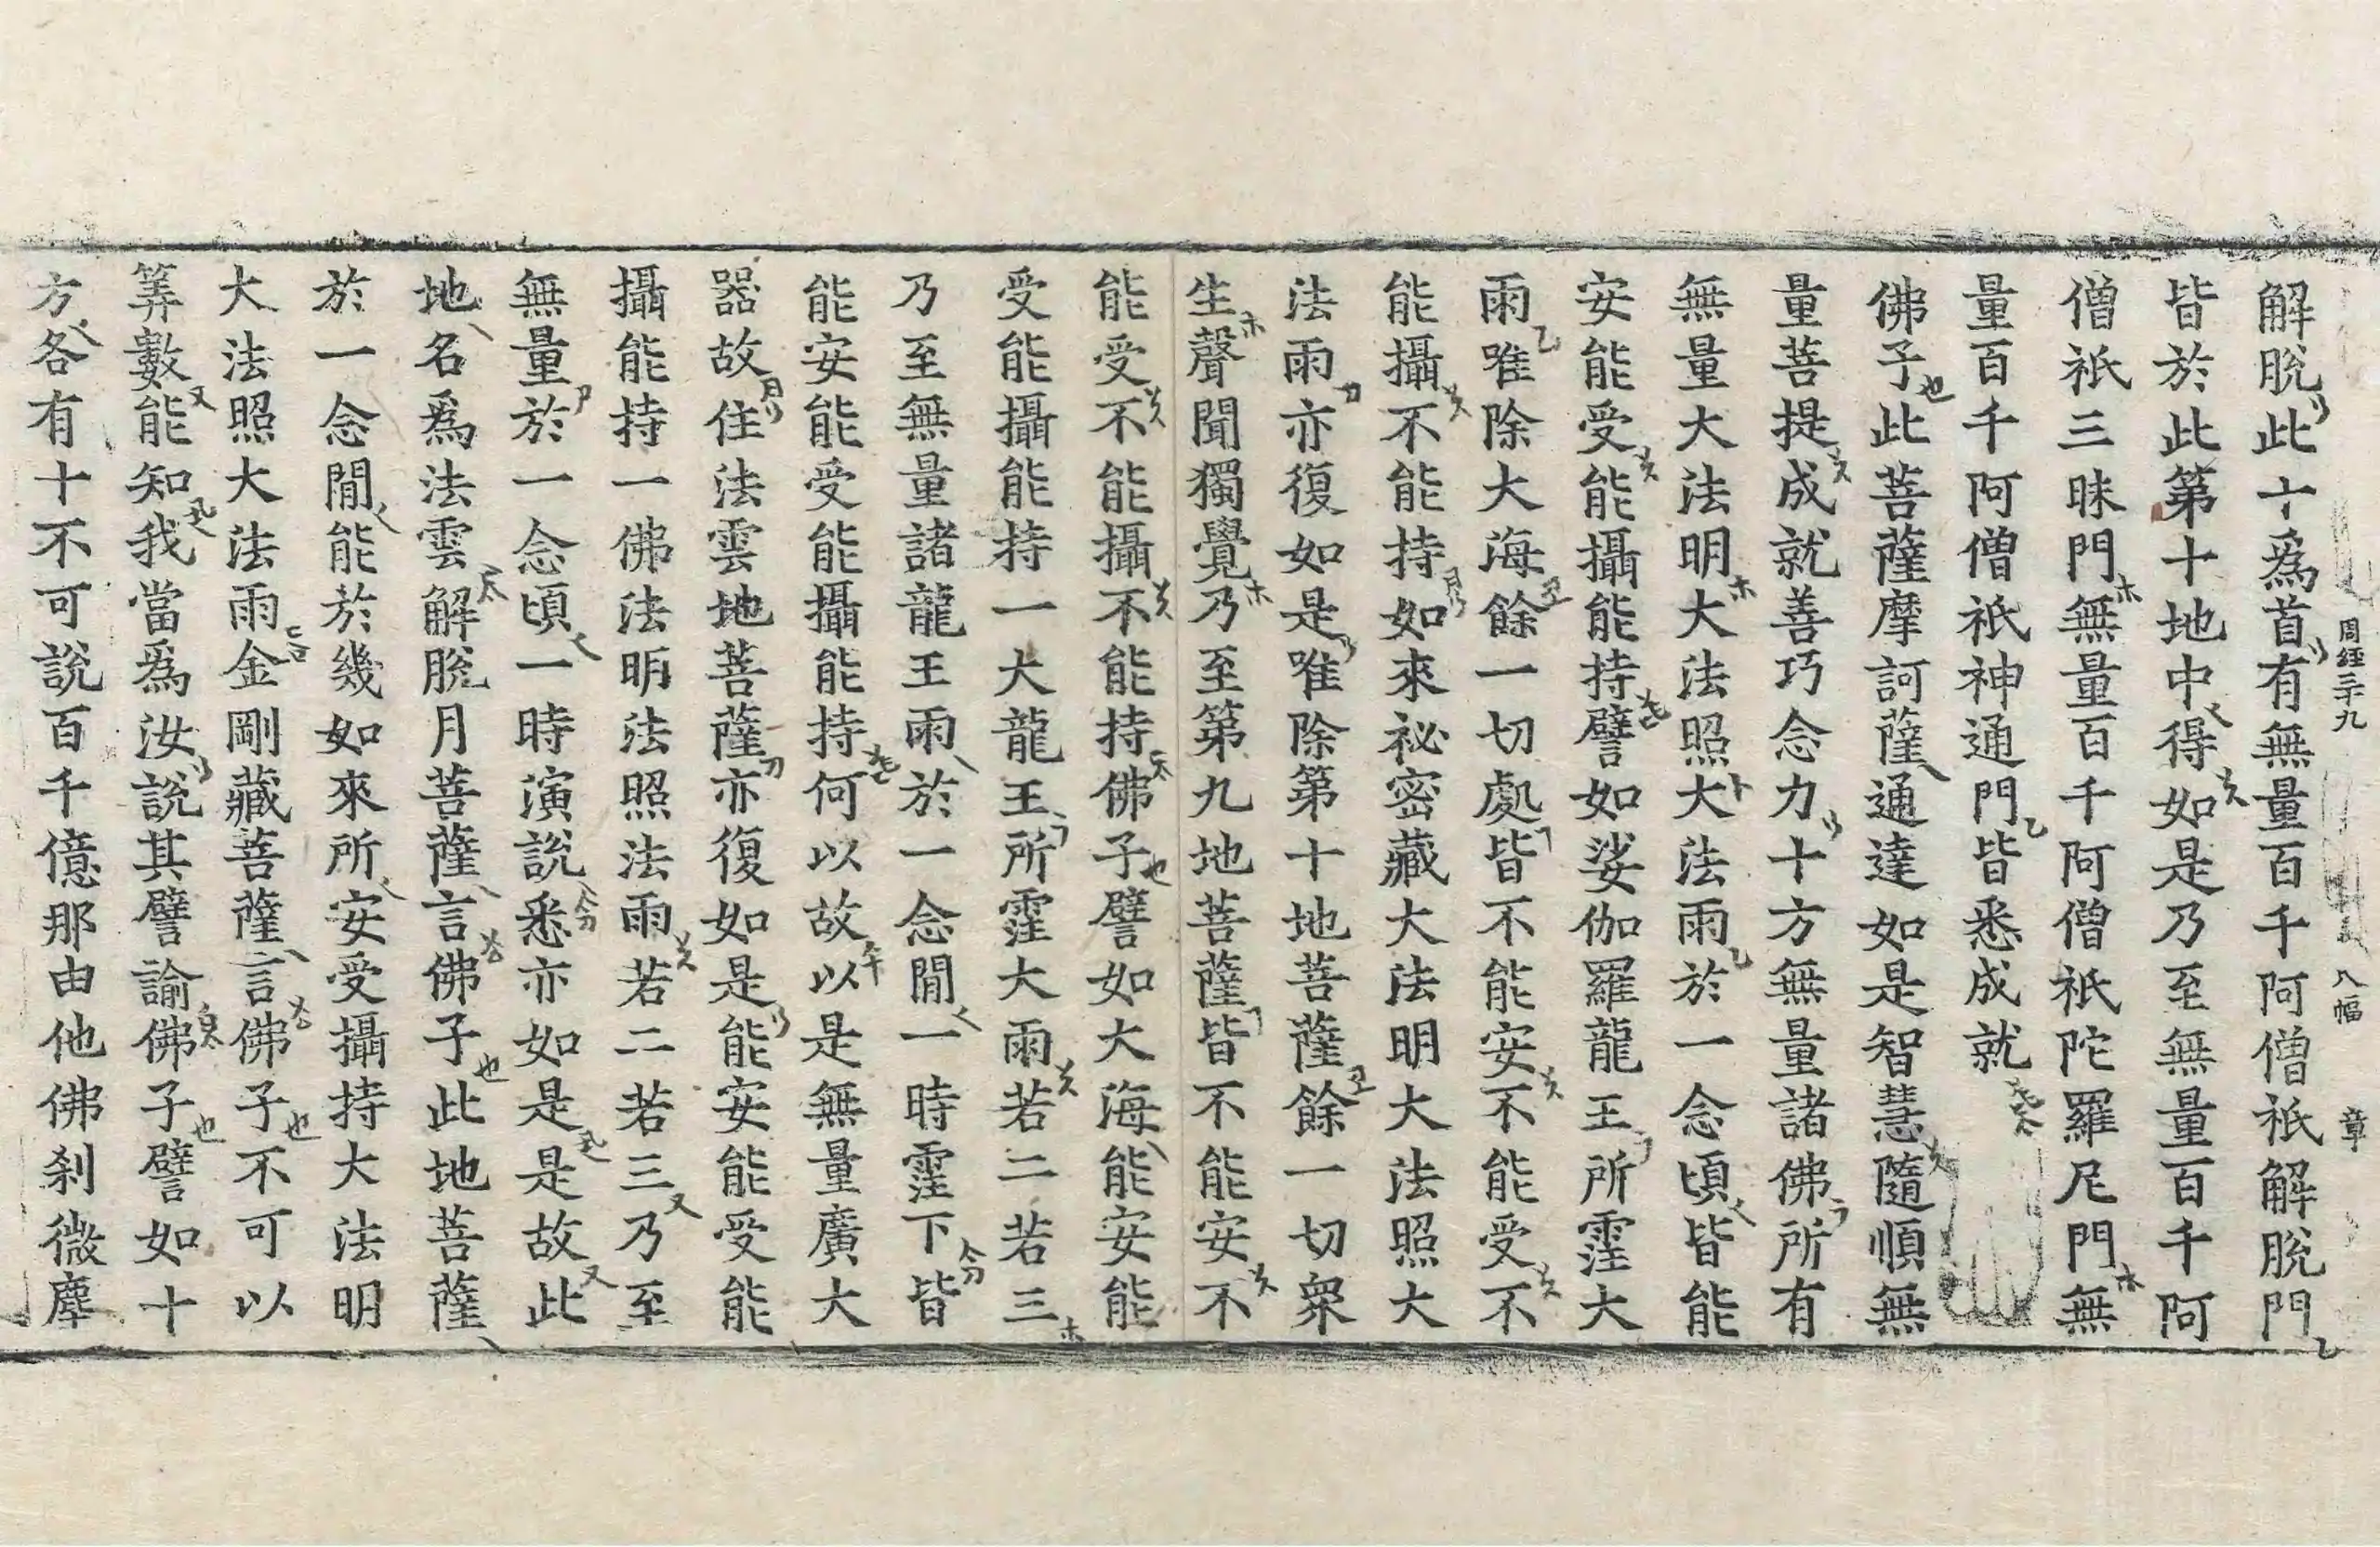 周經三十九 八幅 章
解脫此十爲首有無量百千阿僧祇解脫門
皆於此第十地中得如是乃至無量百千阿
僧祇三昧門無量百千阿僧祇陀羅尼門無
量百千阿僧祇神通門皆悉成就
佛子此菩薩摩訶薩通達如是智慧隨順無
量菩提成就善巧念力十方無量諸佛所有
無量大法明大法照大法雨於一念頃皆能
安能受能攝能持譬如娑伽羅龍王所霔大
雨唯除大海餘一切處皆不能安不能受不
能攝不能持如來祕密藏大法明大法照大
法雨亦復如是唯除第十地菩薩餘一切衆
生聲聞獨覺乃至第九地菩薩皆不能安不
能受不能攝不能持佛子譬如大海能安能
受能攝能持一大龍王所霔大雨若二若三
乃至無量諸龍王雨於一念閒一時霔下皆
能安能受能攝能持何以故以是無量廣大
器故住法雲地菩薩亦復如是能安能受能
攝能持一佛法明法照法雨若二若三乃至
無量於一念頃一時演說悉亦如是是故此
地名爲法雲解脫月菩薩言佛子此地菩薩
於一念閒能於幾如來所安受攝持大法明
大法照大法雨金剛藏菩薩言佛子不可以
筭數能知我當爲汝說其譬諭佛子譬如十
方各有十不可說百千億那由他佛刹微塵